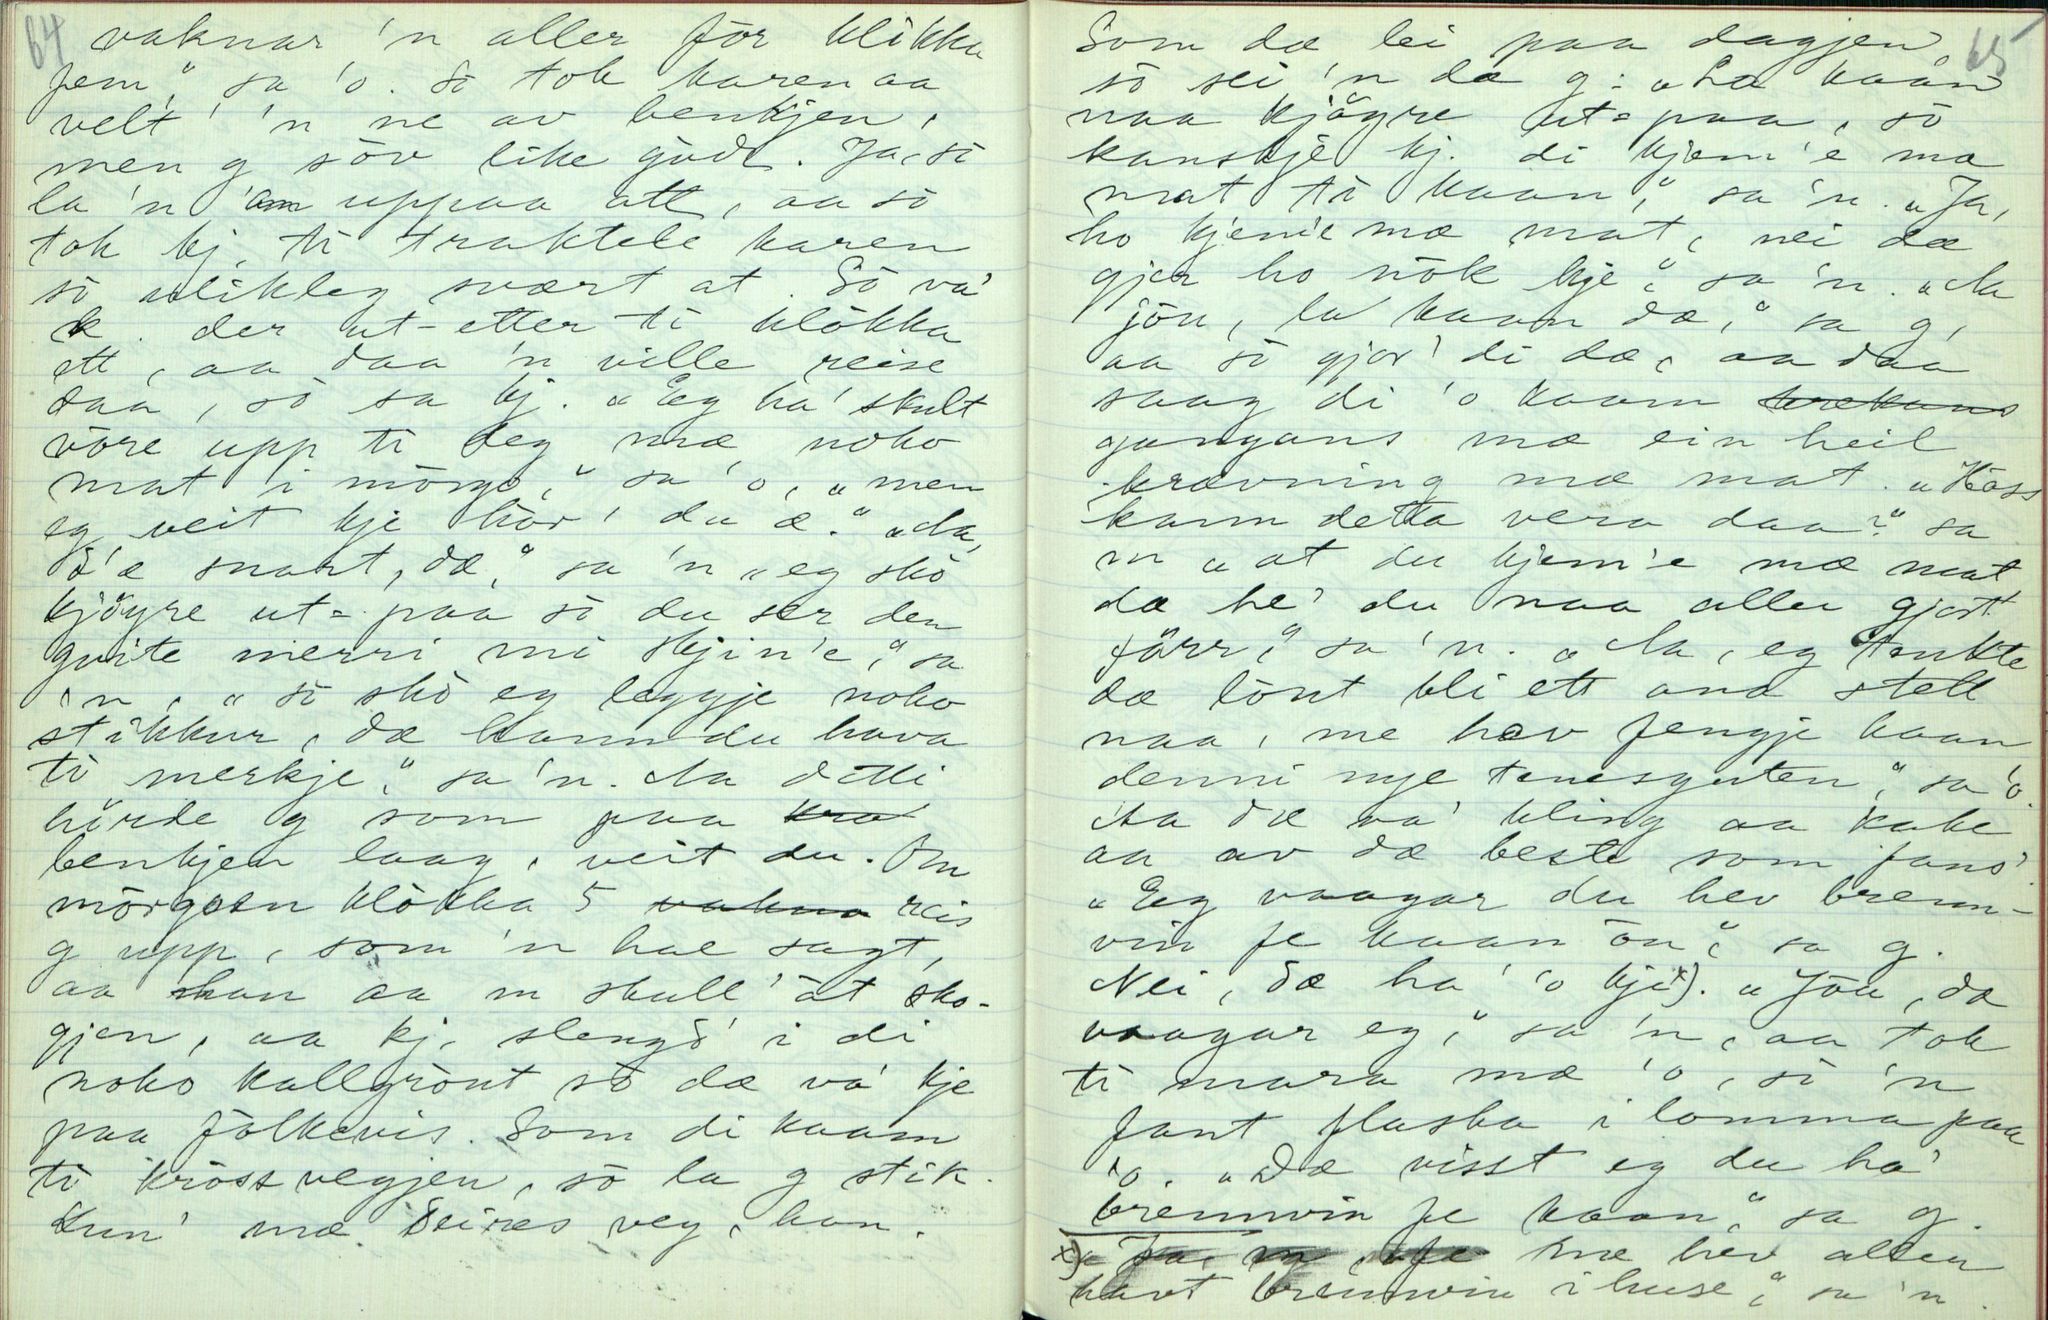 64
vaknar 'n aller för klökka
fem," sa 'o. Så tok karen aa
velt' 'n ne av benkjen,
men g söv like godt. Ja, så
la 'n 'an uppaa att, aa så
tok kj. ti traktele karen
så ulikleg svært at. Så va'
k. der ut-etter ti klökka
ett, aa daa 'n ville reise
daa, så sa kj. „Eg ha' skult
vöre upp ti deg mæ noko
mat i mörgo," sa 'o, „men
eg veit kje hår' du æ." „Aa,
d'æ snart, dæ," sa 'n „eg skå
kjöyre ut-paa så du ser den
gvite merri mi skjin'e," sa
'n, „så skå eg leggje noko
stikkur, dæ kann du hava
ti merkje," sa 'n. Aa detti
hörde g som paa
benkjen laag, veit du. Om
mörgoen klökka 5 reis
g upp, som 'n hae sagt,
aa han aa m skull' åt sko-
gjen, aa kj. slengd' i di
noko kallgrönt så dæ va' kje
paa fölkevis. Som di kaam
ti krössvegjen, så la g stik-
kun' mæ deires veg, han.
65
Som dæ lei paa dagjen
så sei 'n då g: „La kåån
naa kjöyre ut-paa, så
kanskje kj. di kjem'e mæ
mat ti kaan," sa 'n. „Ja,
ho kjem'e mæ mat, nei dæ
gjer ho nök kje," sa 'n. „Aa
jöu, la kaan dæ," sa g,
aa så gjor' di dæ, aa daa
saag di 'o kaam
gangans mæ ein heil
krævning mæ mat. „Höss
kann detta vera daa?" sa
m „at du kjem'e mæ mat
dæ he' du naa aller gjort
förr," sa 'n. „Aa, eg tenkte
dæ lönt bli ett ana stell
naa, me hev fengje kaan
denni nye tenesguten," sa 'o.
Aa dæ va' kling aa kake
aa av dæ beste som fans'.
„Eg vaagar du hev brenn-
vin fe kaan öu," sa g.
Nei, dæ ha' 'o kje x). „Jöu, dæ
vaagar eg," sa 'n, aa tok
ti mara mæ 'o, så 'n
fant flaska i lomma paa
'o. „Dæ visst eg du ha'
brennvin fe kaan," sa g.
x) „ me hev aller
havt brennvin i huse," sa 'n.